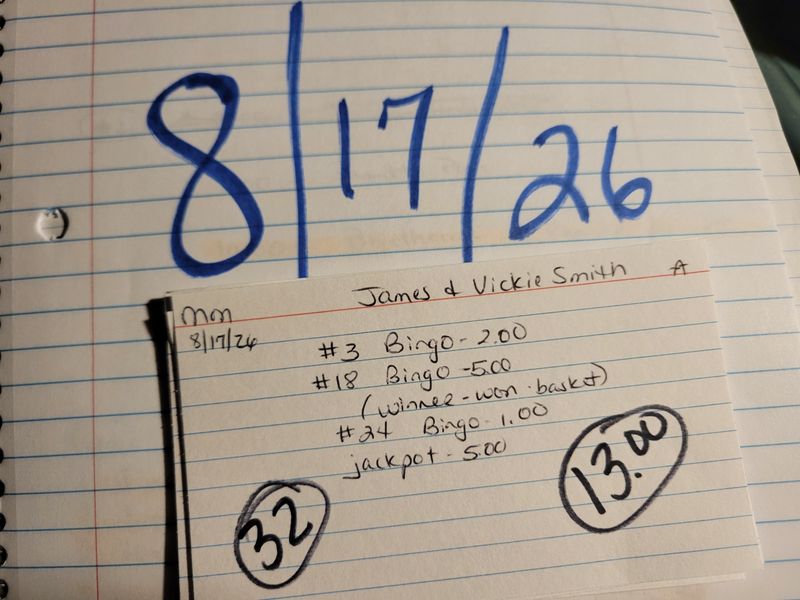 8/17/26
James & Vickie Smith A
mm
8/17/26
#3 Bingo - 2.00
#18 Bingo - 5.00
(winnee - won basket)
#24 Bingo - 1.00
jackpot - 5.00
32
13.00